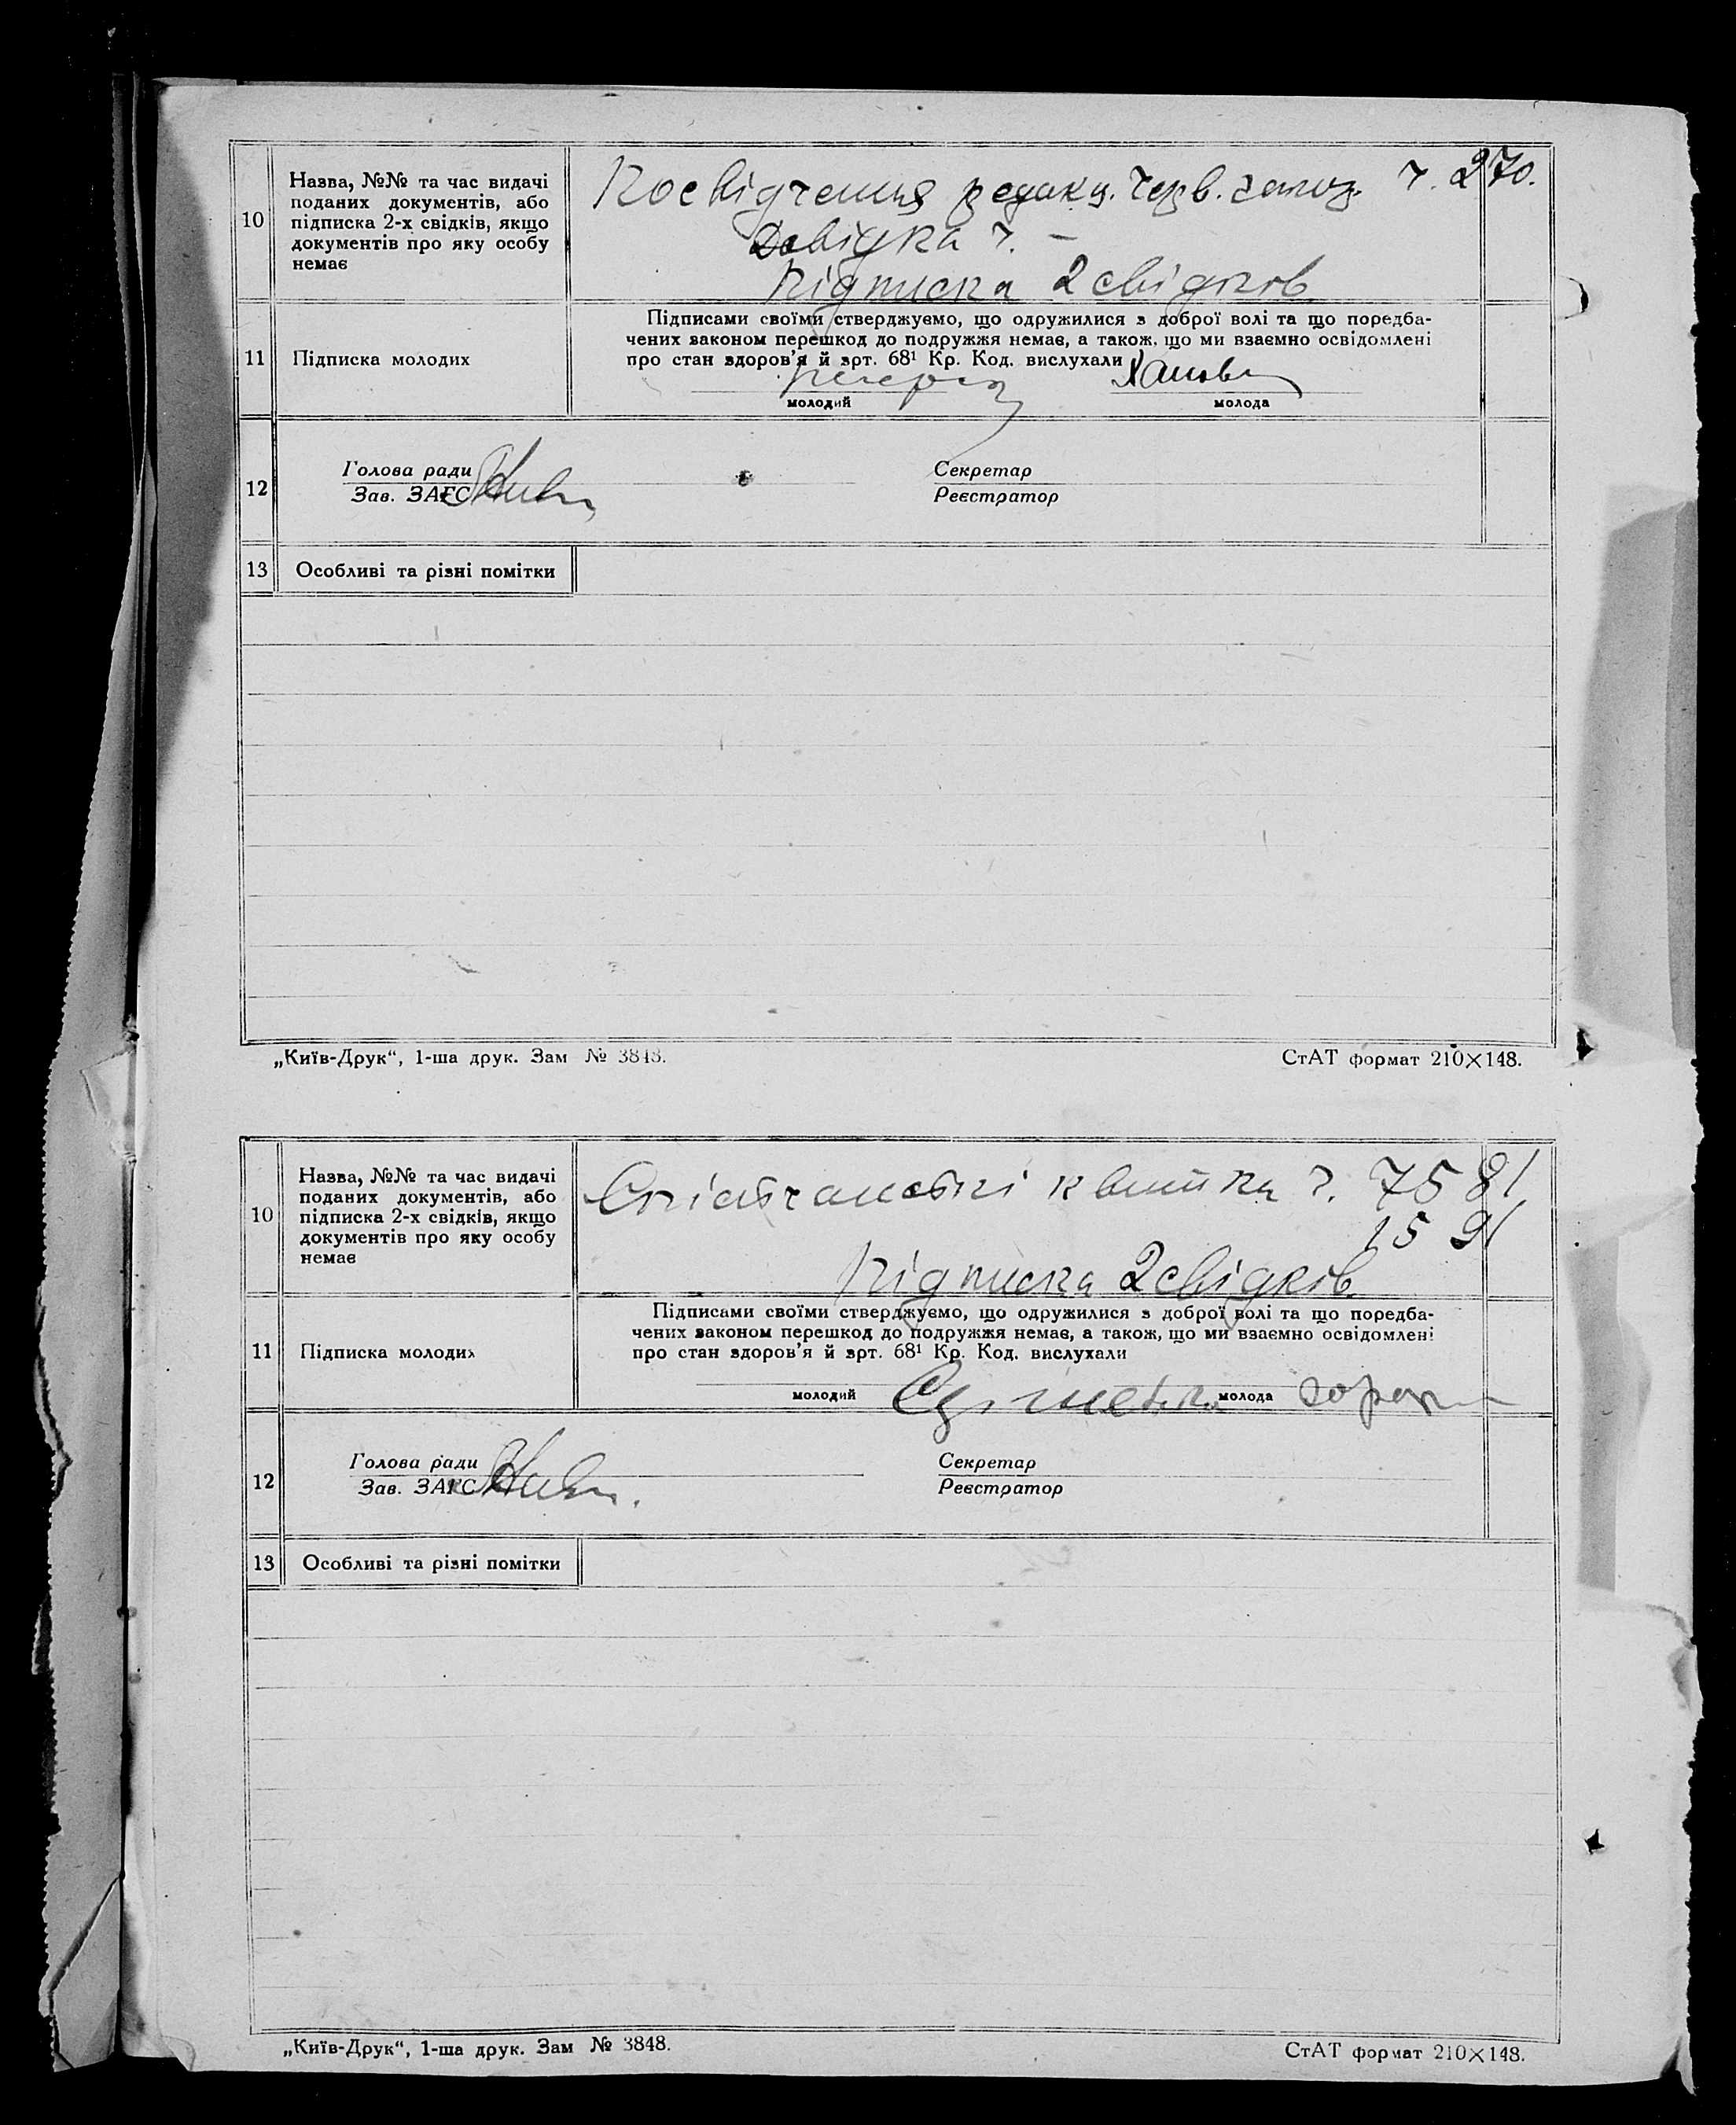 10
Назва, №№ та час видачі
поданих документів, або
підписка 2-х свідків, якщо
документів про яку особу
немає
Посвідчення редакц. Черв. ч. 270.
Довідка ч. —
Підписка 2 свідків
11
Підписка молодих
Підписами своїми стверджуємо, що одружилися з доброї волі та що поредба-
чених законом перешкод до подружжя немає, а також, що ми взаємно освідомлені
про стан здоров'я й зрт. 68¹ Кр. Код. вислухали
молодий
молода
12
Голова ради
Зав. ЗАГС
Секретар
Реєстратор
13
Особливі та різні помітки
„Київ-Друк“, 1-ша друк. Зам № 3848.
СтАТ формат 210×148.
10
Назва, №№ та час видачі
поданих документів, або
підписка 2-х свідків, якщо
документів про яку особу
немає
квитка ч. 7581
1591
Підписка 2 свідків
11
Підписка молодих
Підписами своїми стверджуємо, що одружилися з доброї волі та що поредба-
чених законом перешкод до подружжя немає, а також, що ми взаємно освідомлені
про стан здоров'я й зрт. 68¹ Кр. Код. вислухали
молодий
молода
12
Голова ради
Зав. ЗАГС
Секретар
Реєстратор
13
Особливі та різні помітки
„Київ-Друк“, 1-ша друк. Зам № 3848.
СтАТ формат 210×148.